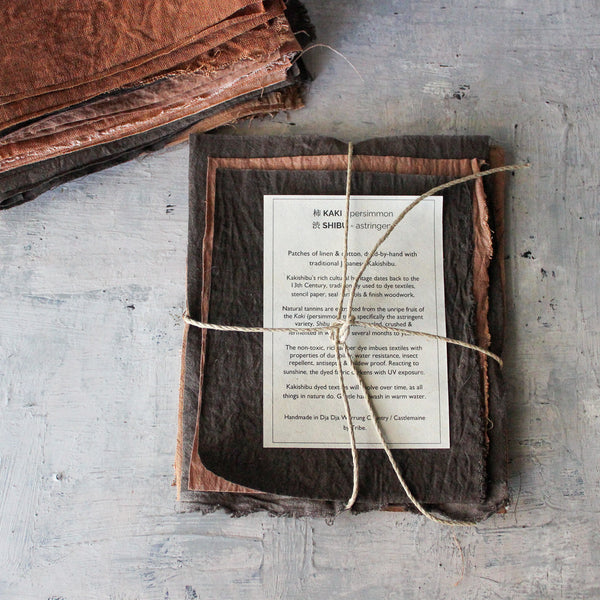 柿 KAKI - persimmon
渋 SHIBU - astringent
Patches of linen & cotton, dyed-by-hand with
traditional Japanese Kakishibu.
Kakishibu's rich cultural heritage dates back to the
13th Century, traditionally used to dye textiles,
stencil paper, seal barrels & finish woodwork.
Natural tannins are extracted from the unripe fruit of
the Kaki (persimmon) tree, specifically the astringent
variety, Shibu crushed &
fermented in several months to
The non-toxic, rich amber dye imbues textiles with
properties of durability, water resistance, insect
repellent, antiseptic & mildew proof. Reacting to
sunshine, the dyed fabric darkens with UV exposure.
Kakishibu dyed textiles will evolve over time, as all
things in nature do. Gentle hand wash in warm water.
Handmade in Dja Dja Wurrung Country / Castlemaine
by Tribe.